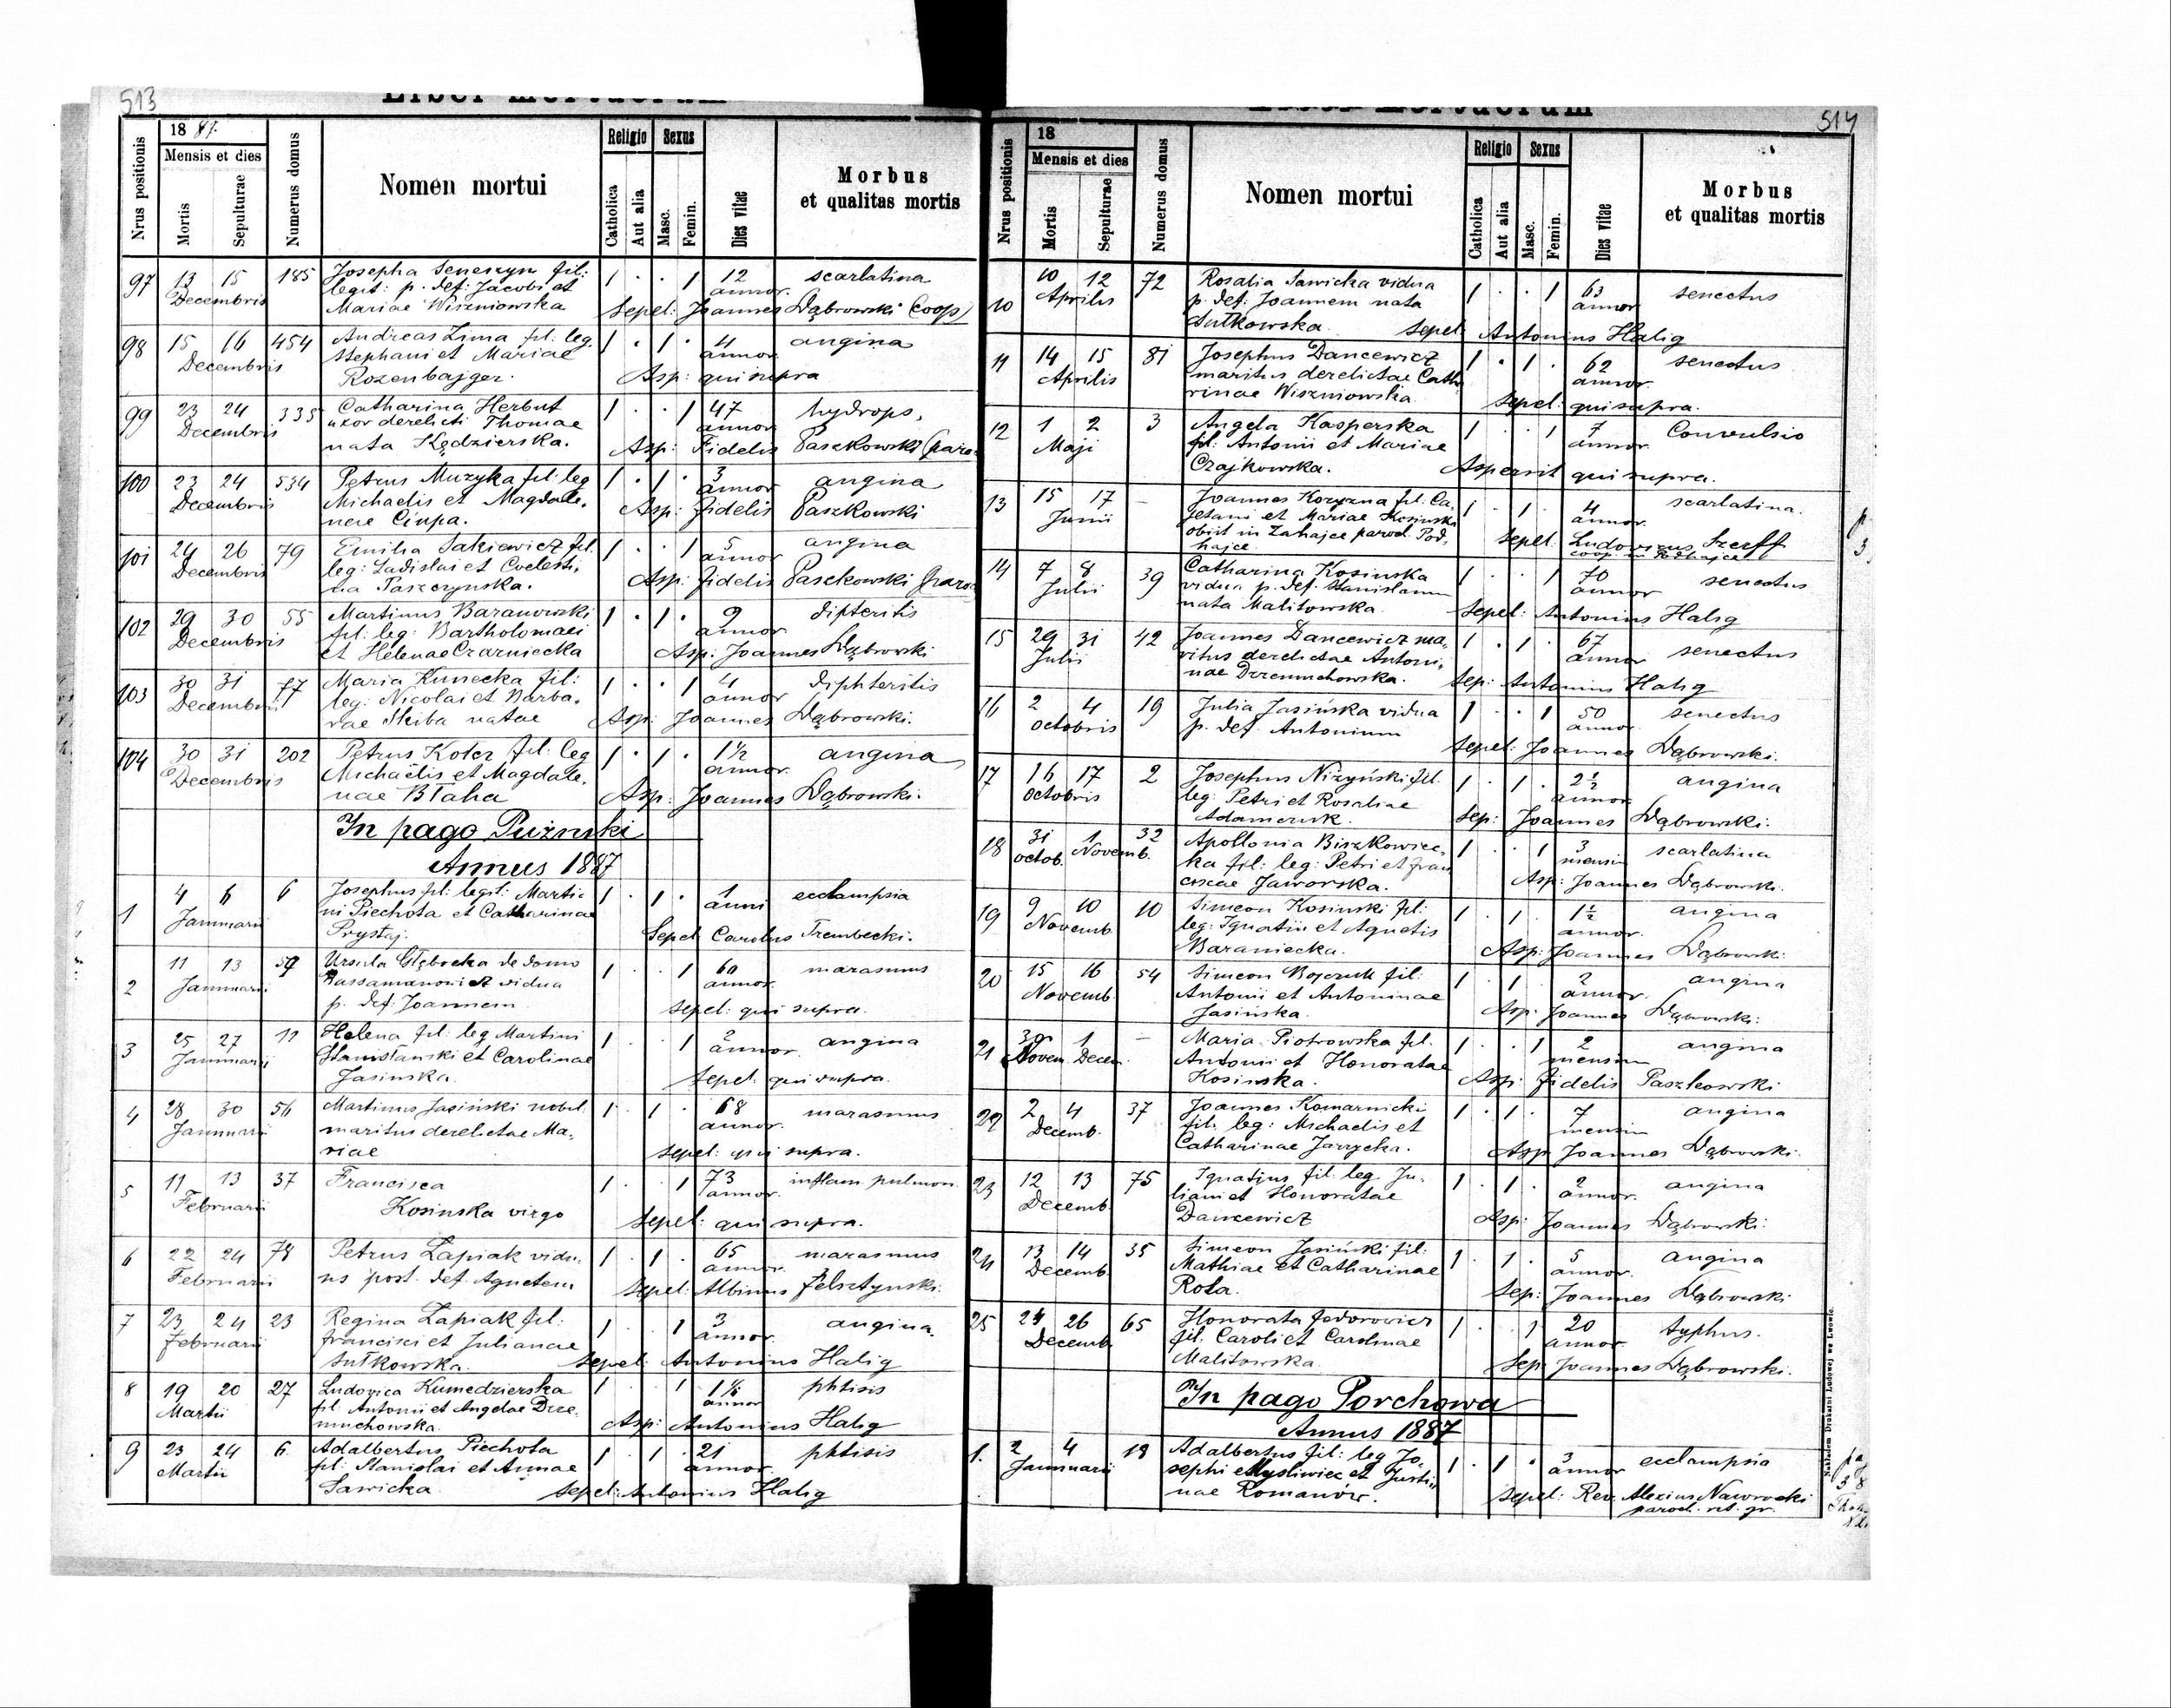 513
Liber Mortuorum
Nrus positionis
1887.
Mensis et dies
Mortis
Sepulturae
Numerus domus
Nomen mortui
Religio
Catholica
Aut alia
Sexus
Masc.
Femin.
Dies vitae
Morbus
et qualitas mortis
97 13 15 185 Josepha Seneszyn fil: 1 . . 1 12 scarlatina
Decembris legit: p. def: Jacobi et annor.
Mariae Wiszniowska Sepel: Joannes Dąbrowski (coop)
98 15 16 454 Andreas Zima fil: leg. 1 . 1 . 4 angina
Decembris Stephani et Mariae annor
Rozenbajger. Asp: qui supra
99 23 24 335 Catharina Herbut 1 . . 1 47 hydrops,
Decembris uxor derelicti Thomae annor
nata Kędzierska. Asp: Fidelis Paszkowski (paro
100 23 24 534 Petrus Muzyka fil: leg 1 . 1 . 3 angina
Decembris Michaelis et Magdale, annor
nae Ciupa. Asp: Fidelis Paszkowski
101 24 26 79 Emilia Sakiewicz fil. 1 . . 1 5 angina
Decembris leg: Ladislai et Coelesti, annor
na Paszczynska. Asp: Fidelis Paszkowski (paro
102 29 30 55 Martinus Baranowski 1 . 1 . 9 dipteritis
Decembris fil: leg: Bartholomaei annor
et Helenae Czarniecka Asp: Joannes Dąbrowski
103 30 31 77 Maria Kunecka fil: 1 . . 1 4 diphteritis
Decembris leg: Nicolai et Barba, annor
rae Skiba natae Asp: Joannes Dąbrowski.
104 30 31 202 Petrus Koter fil: leg 1 . 1 . 1½ angina
Decembris Michaëlis et Magdale, annor.
nae Błaha Asp: Joannes Dąbrowski.
In pago Pużniki
Annus 1887
1 4 6 6 Josephus fil: legit: Marti= 1 . 1 . 1 ecclampsia
Januarii ni Piechota et Catharinae anni
Prystaj. Sepel Carolus Trembecki.
2 11 13 59 Ursula Głębocka de domo 1 . 1 60 marasmus
Januarii vidua annor.
p. def: Joannem sepel: qui supra.
3 25 27 11 Helena fil: leg Martini 1 . 1 2 angina
Januarii Stanisławski et Carolinae annor.
Jasinska. Sepel. qui supra.
4 28 30 56 Martinus Jasiński nobil 1 . 1 . 68 marasmus
Januarii maritus derelictae Ma, annor.
riae sepel: qui supra.
5 11 13 37 Francisca 1 . 1 73 inflam pulmon.
Februarii Kosinska virgo annor.
Sepel: qui supra.
6 22 24 78 Petrus Łapiak vidu, 1 . 1 . 65 marasmus
Februarii us post. def. Agnetem annor.
Sepel: Albinus Felsztynski.
7 23 24 23 Regina Łapiak fil: 1 . 1 3 angina.
Februarii Francisci et Julianae annor.
Sułkowska. Sepel: Antonius Halig
8 19 20 27 Ludovica Kumedzierska 1 1 1½ phtisis
Martii fil: Antonii et Angelae Drze, annor
muchowska Asp: Antonius Halig
9 23 24 6. Adalbertus Piechota 1 1 . 21 phtisis
Martii fil: Stanislai et Annae annor.
Sawicka Sepel: Antonius Halig
514
Liber Mortuorum
Nrus positionis
18
Mensis et dies
Mortis
Sepulturae
Numerus domus
Nomen mortui
Religio
Catholica
Aut alia
Sexus
Masc.
Femin.
Dies vitae
Morbus
et qualitas mortis
10 10 12 72 Rosalia Sawicka vidua 1 . . 1 63 senectus
Aprilis p. def: Joannem nata annor
Sułkowska. Sepel Antonius Halig
11 14 15 81 Josephus Dancewicz 1 . 1 . 62 senectus
Aprilis maritus derelictae Catha annor.
rinae Wiszniowska. Sepel: qui supra.
12 1 2 3 Angela Kasperska 1 . . 1 7 Convulsio
Maji fil: Antonii et Mariae annor.
Czajkowska. Aspersit qui supra.
13 15 17 – Joannes Kozyzna fil: Ca, 1 . 1 . 4 scarlatina.
Junii jetani et Mariae Kosinska annor.
obiit in Zahajce paroch. Pod, Sepel: Ludovicus Szerff
hajce coop. in Podhajce
14 7 8 39 Catharina Kosinska 1 . . 1 70 senectus
Julii vidua p. def. Stanislaum annor
nata Malitowska. Sepel: Antonius Halig
15 29 31 42 Joannes Dancewicz ma, 1 . 1 . 67 senectus
Julii ritus derelictae Antoni, annor
nae Drzemuchowska. Sep: Antonius Halig
16 2 4 19 Julia Jasińska vidua 1 . . 1 50 senectus
Octobris p. def. Antonium annor.
Sepel: Joannes Dąbrowski.
17 16 17 2 Josephus Niżyński fil. 1 . 1 . 2½ angina
Octobris leg: Petri et Rosaliae annor.
Adamczuk. Sep: Joannes Dąbrowski.
18 31 1 32 Apollonia Biszkowiec, 1 . 1 3 scarlatina
Octob. Novemb. ka fil: leg: Petri et Fran mensin
ciscae Jaworska. Asp: Joannes Dąbrowski.
19 9 10 10 Simeon Kosinski fil: 1 . 1 . 1½ angina
Novemb. leg: Ignatii et Agnetis annor.
Baraniecka. Asp: Joannes Dąbrowski.
20 15 16 54 Simeon Bojczuk fil: 1 . 1 . 2 angina
Novemb. Antonii et Antoninae annor.
Jasińska. Asp: Joannes Dąbrowski.
21 30 1 – Maria Piotrowska fil. 1 . . 1 2 angina
Novem. Decem. Antonii et Honoratae mensin
Kosinska. Asp: Fidelis Paszkowski
22 2 4 37 Joannes Komarnicki 1 . 1 . 7 angina
Decemb. fil. leg: Michaelis et mensin
Catharinae Jarzycka. Asp Joannes Dąbrowski.
23 12 13 75 Ignatius fil. leg. Ju, 1 . 1 . 2 angina
Decemb. liani et Honoratae annor.
Dancewicz Asp: Joannes Dąbrowski.
24 13 14 35 Simeon Jasiński fil: 1 . 1 . 5 angina
Decemb. Mathiae et Catharinae annor.
Rota. Sep: Joannes Dąbrowski
25 24 26 65 Honorata Fedorowicz 1 . 1 20 typhus.
Decemb. fil. Caroli et Carolinae annor.
Malitowska. Sep: Joannes Dąbrowski.
In pago Porchowa
Annus 1887
1. 2 4 18 Adalbertus fil: leg Jo, 1 . 1 . 3 ecclampsia
Januarii sephi Mysliwiec et Justi, annor
nae Romanów. Sepel: Rev. Alexius Nawrocki
paroch. rit. gr.
Nakładem Drukarni Ludowej we Lwowie.